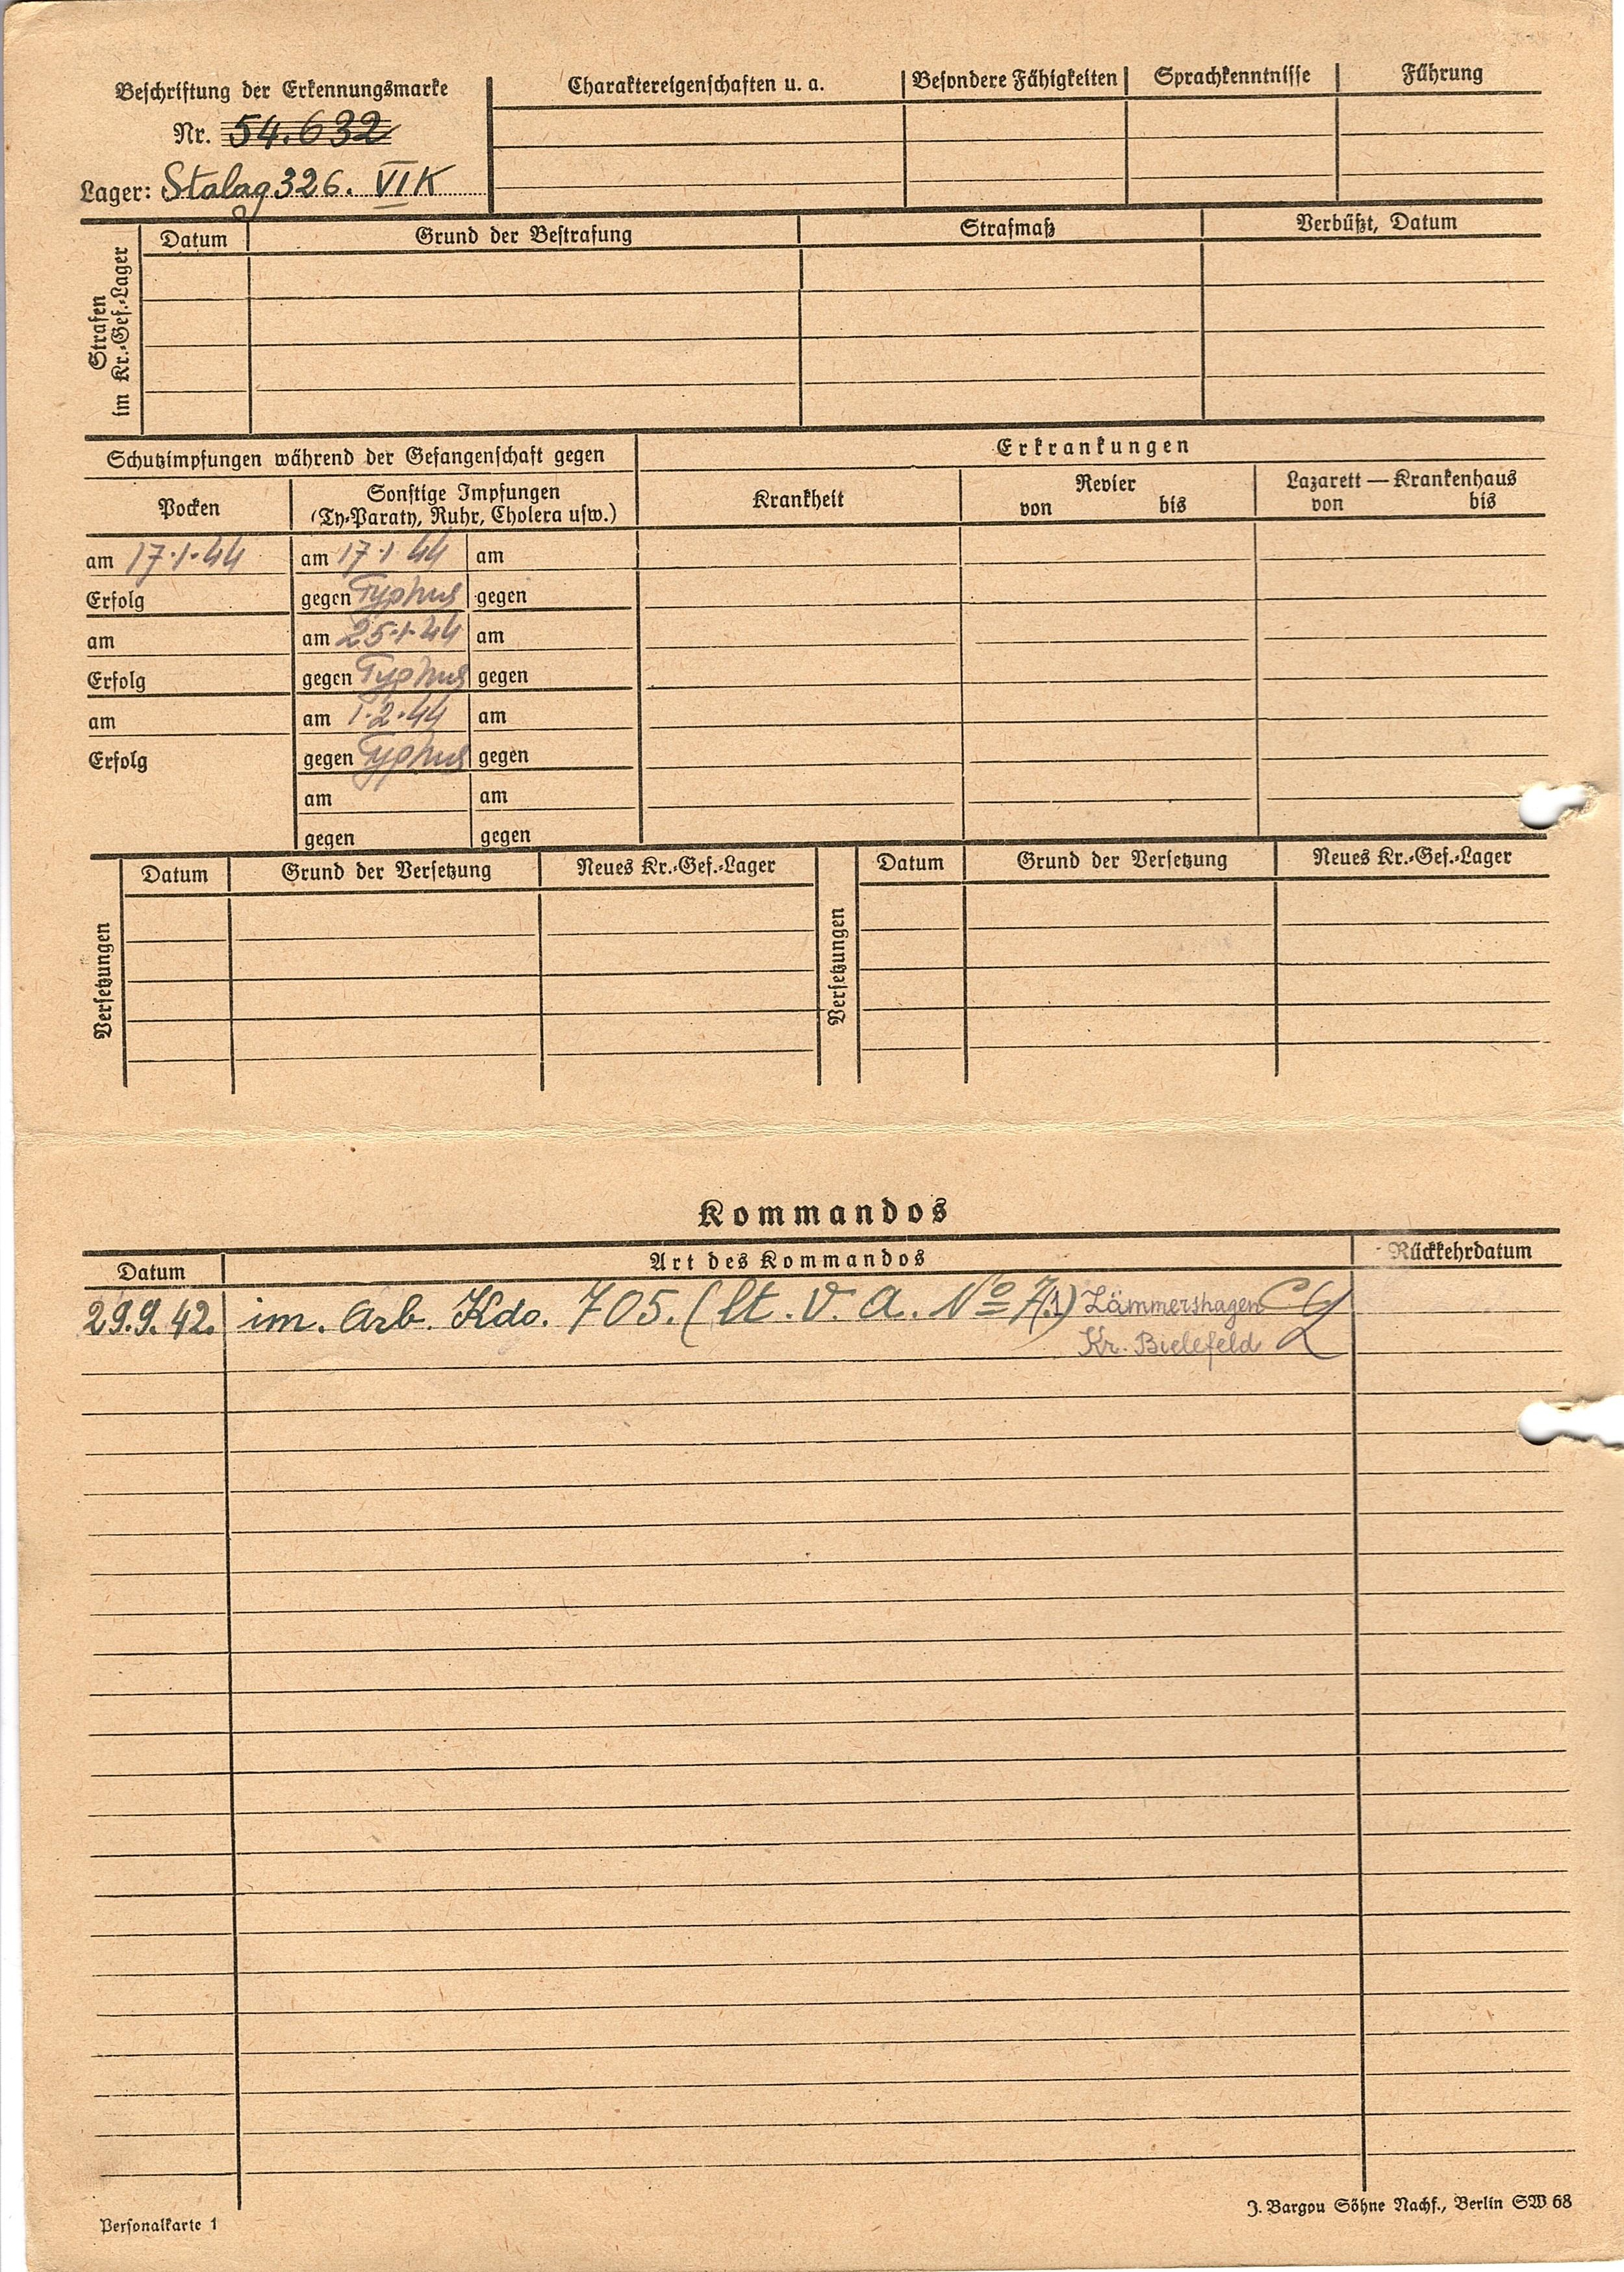 Beschriftung der Erkennungsmarke
Nr. 54.632
Lager: Stalag 326. VI K
Charaktereigenschaften u. a. Besondere Fähigkeiten Sprachkenntnisse Führung
Strafen
im Kr.-Gef.-Lager
Datum Grund der Bestrafung Strafmaß Verbüßt, Datum
Schutzimpfungen während der Gefangenschaft gegen
Pocken
Sonstige Impfungen
(Ty-Paraty, Ruhr, Cholera usw.)
am 17.1.44 am 17.1.44 am
Erfolg gegen Typhus gegen
am am 25.1.44 am
Erfolg gegen Typhus gegen
am am 1.2.44 am
Erfolg gegen Typhus gegen
am am
gegen gegen
Erkrankungen
Krankheit
Revier
von bis
Lazarett — Krankenhaus
von bis
Versetzungen
Datum Grund der Versetzung Neues Kr.-Gef.-Lager
Versetzungen
Datum Grund der Versetzung Neues Kr.-Gef.-Lager
Kommandos
Datum Art des Kommandos Rückkehrdatum
29.9.42. im. Arb. Kdo. 705. (lt. V. A. No 7/1) Lämmershagen
Kr. Bielefeld
Personalkarte 1
J. Bargou Söhne Nachf., Berlin SW 68